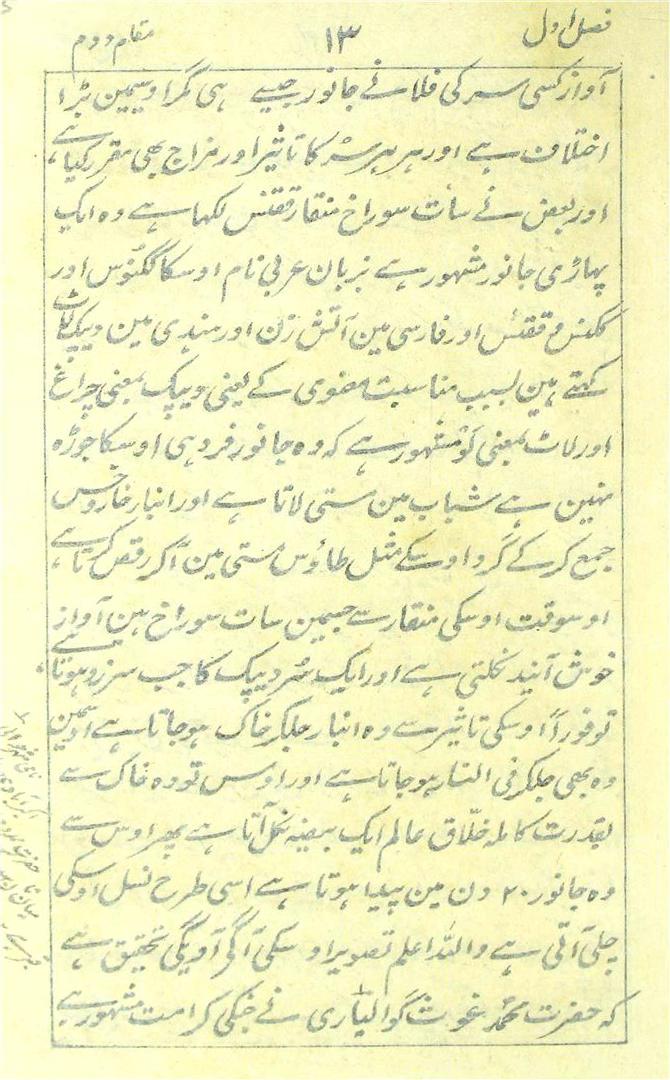 فصل اول ۱۳ مقام دوم
آواز کسی سر کی فلانے جانور جیسے ہی مگر اوسمین بڑا
اختلاف ہے اور ہر ہر سُر کا تاثیر اور مزاج بھی مقرر کیا ہے
اور بعض نے سات سوراخ منقار ققنس لکھا ہے وہ ایک
پہاڑی جانور مشہور ہے بزبان عربی نام اوسکا ککنوس اور
ککنس و ققنس اور فارسی مین آتش زن اور ہندی مین دیپک لاٹ
کہتے ہین بسبب مناسبت معنوی کے یعنی دیپک بمعنی چراغ
اور لاٹ بمعنی لَو مشہور ہے کہ وہ جانور فرد ہی اوسکا جوڑہ
نہین ہے شباب مین مستی لاتا ہے اور انبار خار و خس
جمع کر کے گرد اوسکے مثل طاؤس مستی مین آکر رقص کرتا ہے
اوسوقت اوسکی منقار سے جسمین سات سوراخ ہین آواز
خوش آیند نکلتی ہے اور ایک سُر دیپک کا جب سرزد ہوتا ہے
تو فوراً اوسکی تاثیر سے وہ انبار جلکر خاک ہو جاتا ہے اوسمین
وہ بھی جلکر فی النار ہو جاتا ہے اور اوس تودہ خاک سے
بقدرت کاملہ خلّاق عالم ایک بیضہ نکل آتا ہے پھر اوس سے
وہ جانور ۲۰ دن مین پیدا ہوتا ہے اسی طرح نسل اوسکی
چلی آتی ہے واللہ اعلم تصویر اوسکی آگی آویگی تحقیق ہے
کہ حضرت محمّد غوث گوالیاری نے جنکی کرامت مشہور ہے